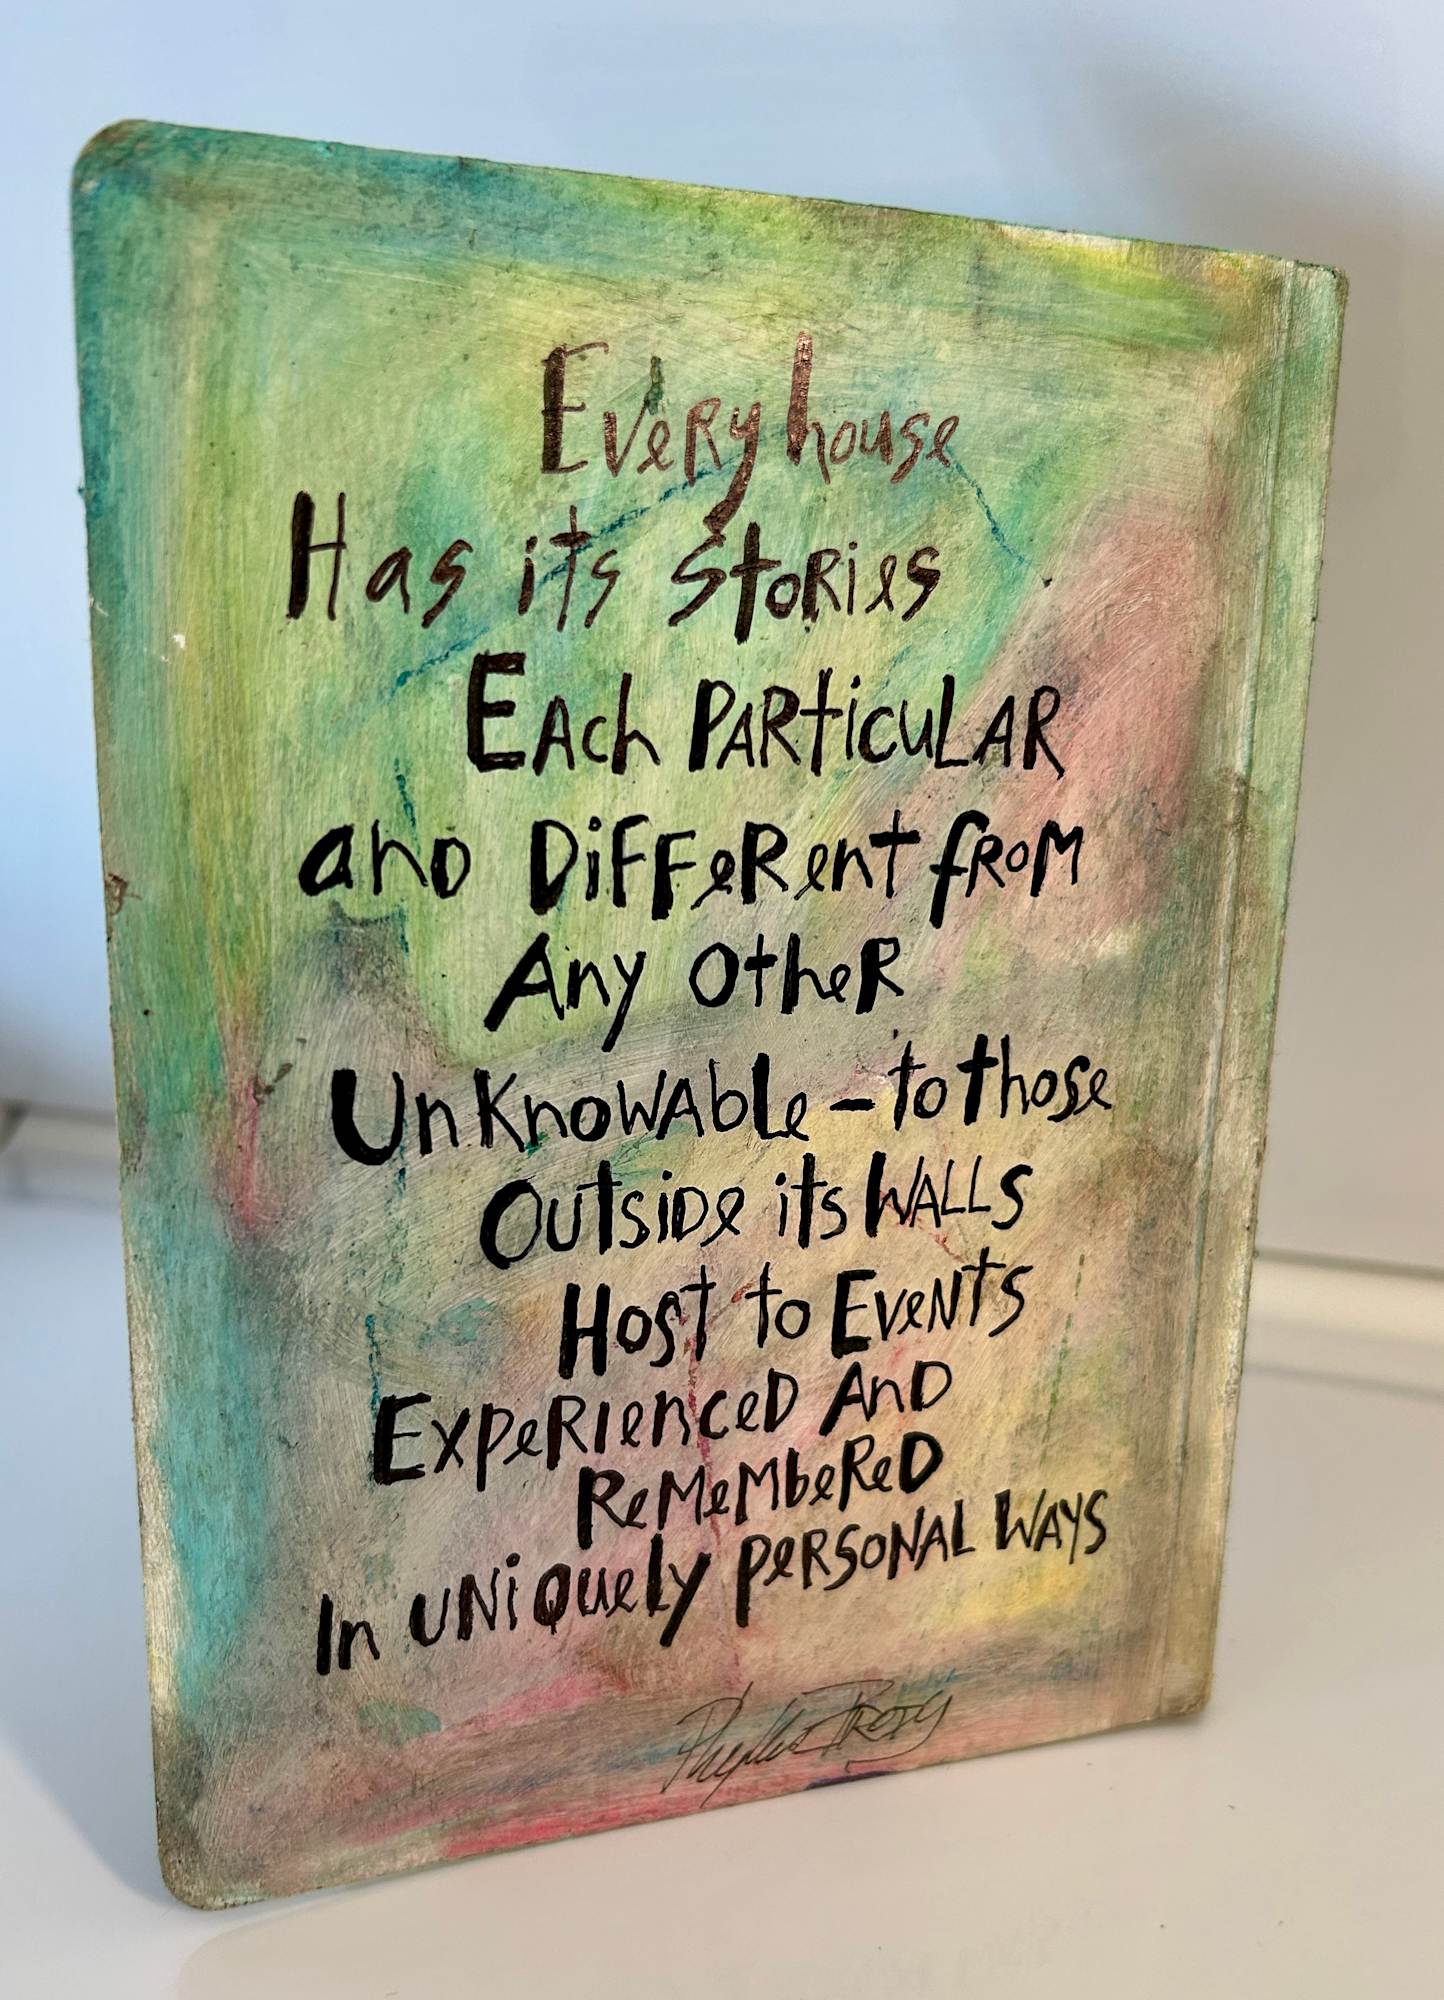 Every house
Has its stories
Each Particular
and Different from
Any Other
Unknowable – to those
Outside its Walls
Host to Events
Experienced And
Remembered
In uniquely personal ways
Phyllis Brody